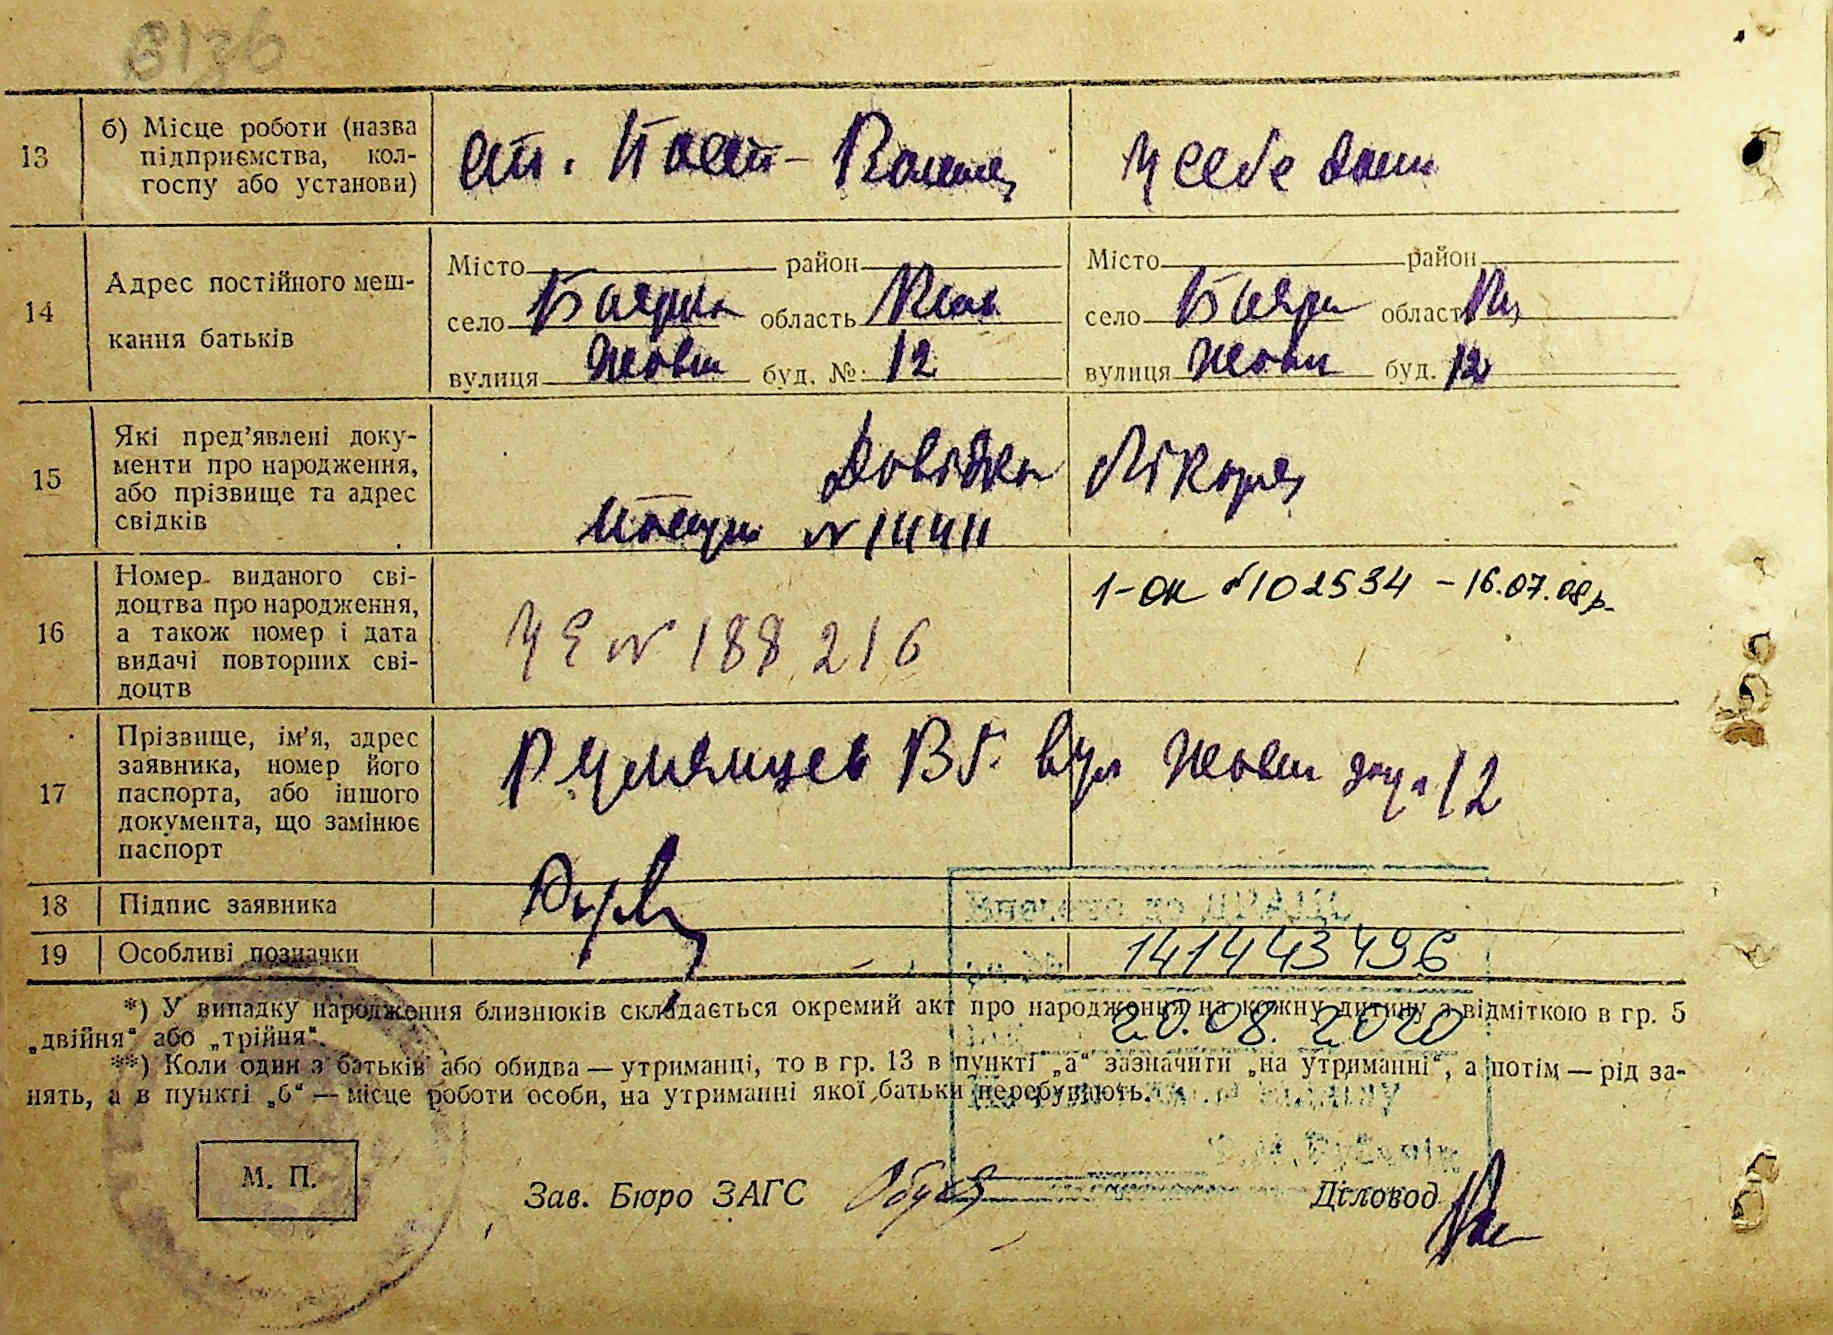 13 б) Місце роботи (назва
підприємства, кол-
госпу або установи)
ст. Пост-
у себе дома
14 Адрес постійного меш-
кання батьків
Місто район
село Боярка область Київ
вулиця Жовт буд. № 12
Місто район
село Бояр област
вулиця Жовт буд. 12
15 Які пред’явлені доку-
менти про народження,
або прізвище та адрес
свідків
Довідка Лікаря
№ 14411
16 Номер виданого сві-
доцтва про народження,
а також номер і дата
видачі повторних сві-
доцтв
УЕ № 188216
1-ок №102534 – 16.07.08р.
17 Прізвище, ім’я, адрес
заявника, номер його
паспорта, або іншого
документа, що замінює
паспорт
Румянцев В Г. вул Жовт 12
18 Підпис заявника
19 Особливі позначки
141443496
20.08.2020
*) У випадку народження близнюків складається окремий акт про народження на кожну дитину з відміткою в гр. 5
„двійня“ або „трійня“.
**) Коли один з батьків або обидва — утриманці, то в гр. 13 в пункті „а“ зазначити „на утриманні“, а потім — рід за-
нять, а в пункті „б“ — місце роботи особи, на утриманні якої батьки перебувають.
М. П.
Зав. Бюро ЗАГС
Діловод